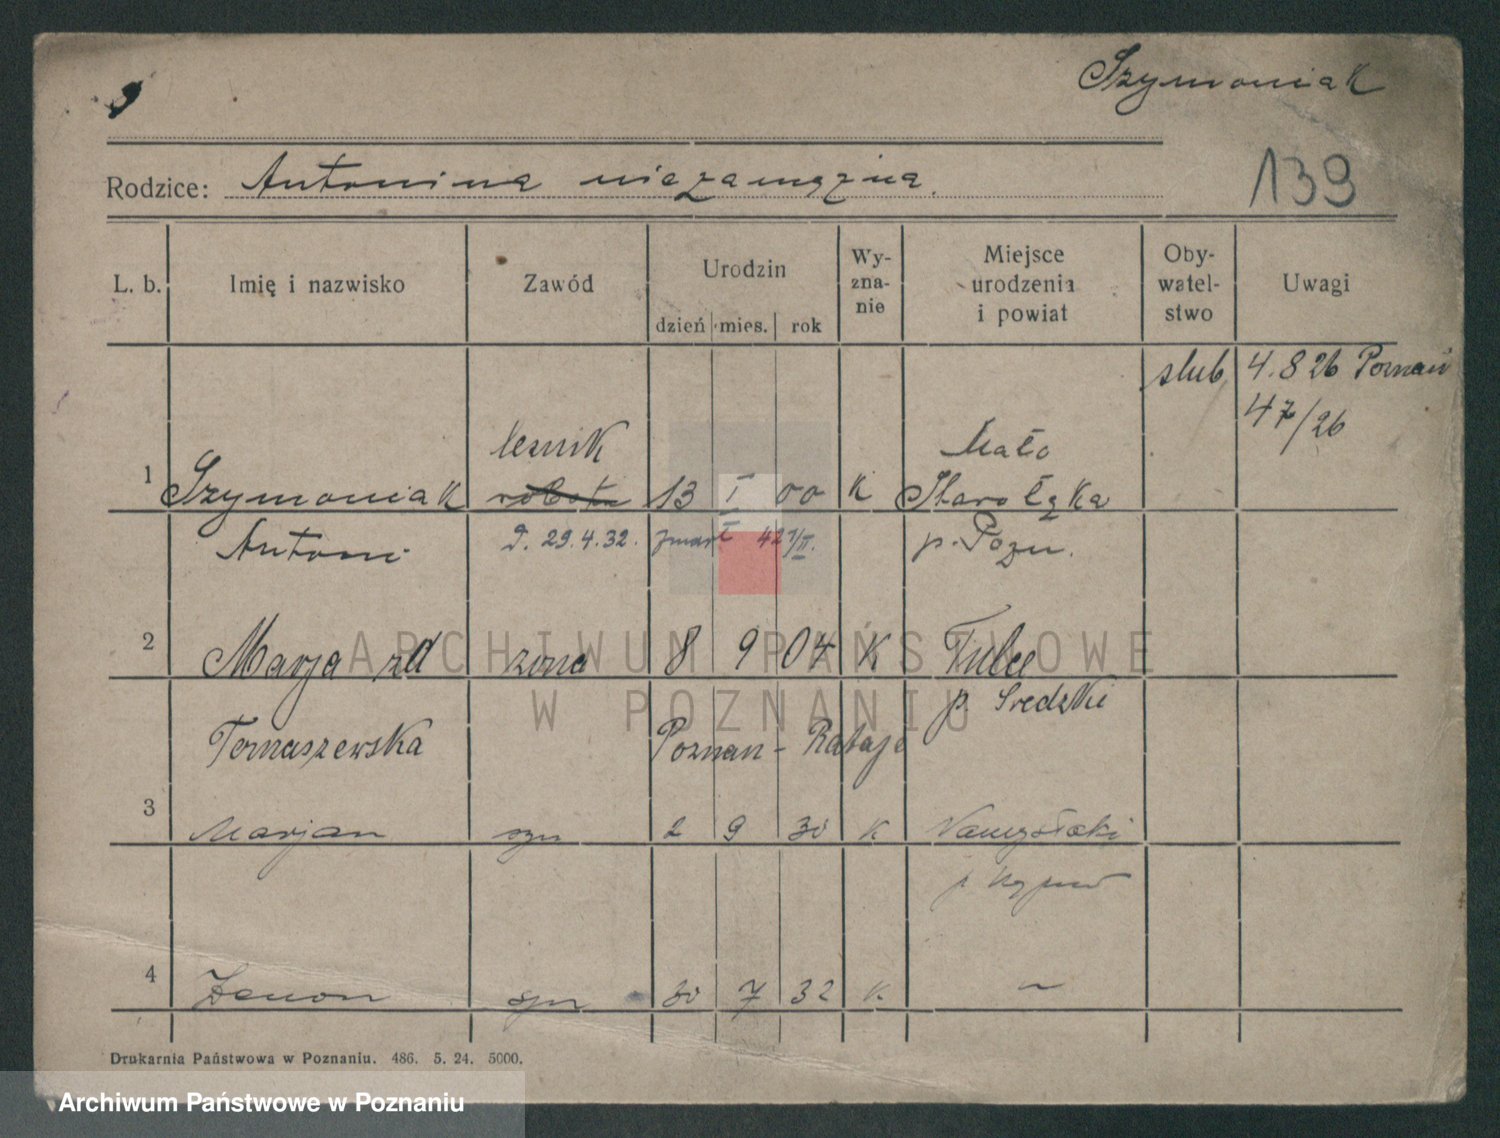 Szymoniak
139
Rodzice: Antonina niezamężna.
L. b. Imię i nazwisko Zawód Urodzin dzień mies. rok Wyznanie Miejsce urodzenia i powiat Obywatelstwo Uwagi
slub 4.8 26 Poznań
47/26
leśnik Mało
1 Szymoniak robotn 13 I 00 K Starołęka
Antoni 29.4.32. zmarł 42 1/II. p. Pozn.
2 Marja zd żona 8 9 04 K Tulce
p. Sredzki
Tomaszewska Poznan - Rataje
3 Marjan syn 2 9 30 K
4 Zenon syn 30 7 32 K
Drukarnia Państwowa w Poznaniu. 486. 5. 24. 5000.
ARCHIWUM PAŃSTWOWE
W POZNANIU
Archiwum Państwowe w Poznaniu